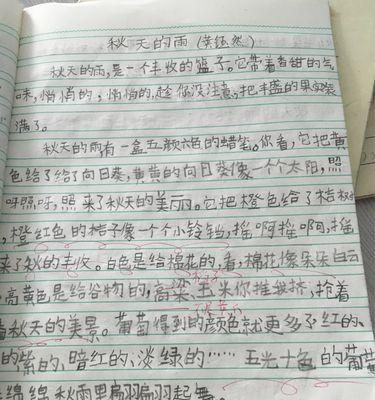 秋天的雨(黄
秋天的雨,是一个丰收的篮子。它带着香甜的气
味,悄悄的,悄悄的,趁你没注意,把丰盛的果实装
满了。
秋天的雨有一盒五颜六色的蜡笔。你看,它把黄
色给了给了向日葵,黄黄的向日葵像一个个太阳,照
呀照呀,照来了秋天的美丽。它把橙色给了桔树
,橙红色的桔子像一个个小铃铛,摇啊摇啊,摇
来了秋的丰收。白色是给棉花的,看,棉花像朵朵白云
高黄色是给谷物的,高粱、玉米你推我挤,抢着
秋天的美景。葡萄得到的颜色就更多了红的、
的紫的、暗红的、淡绿的……五光十色的葡萄
绵绵秋雨里翩翩起舞